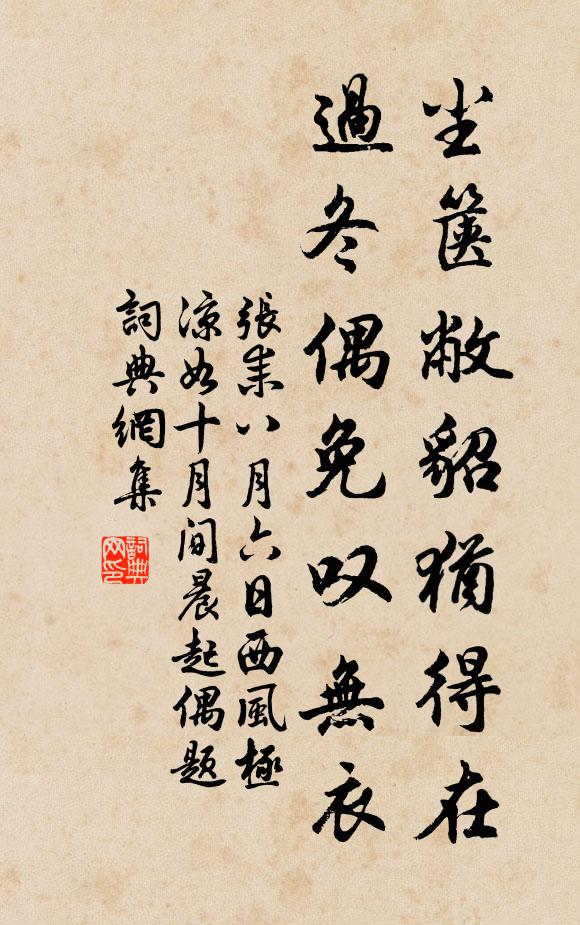 尘篋敝貂猶得在
過冬偶免叹無衣
張耒八月六日西風極
凉如十月间晨起偶题
詞典網集
詞典网印